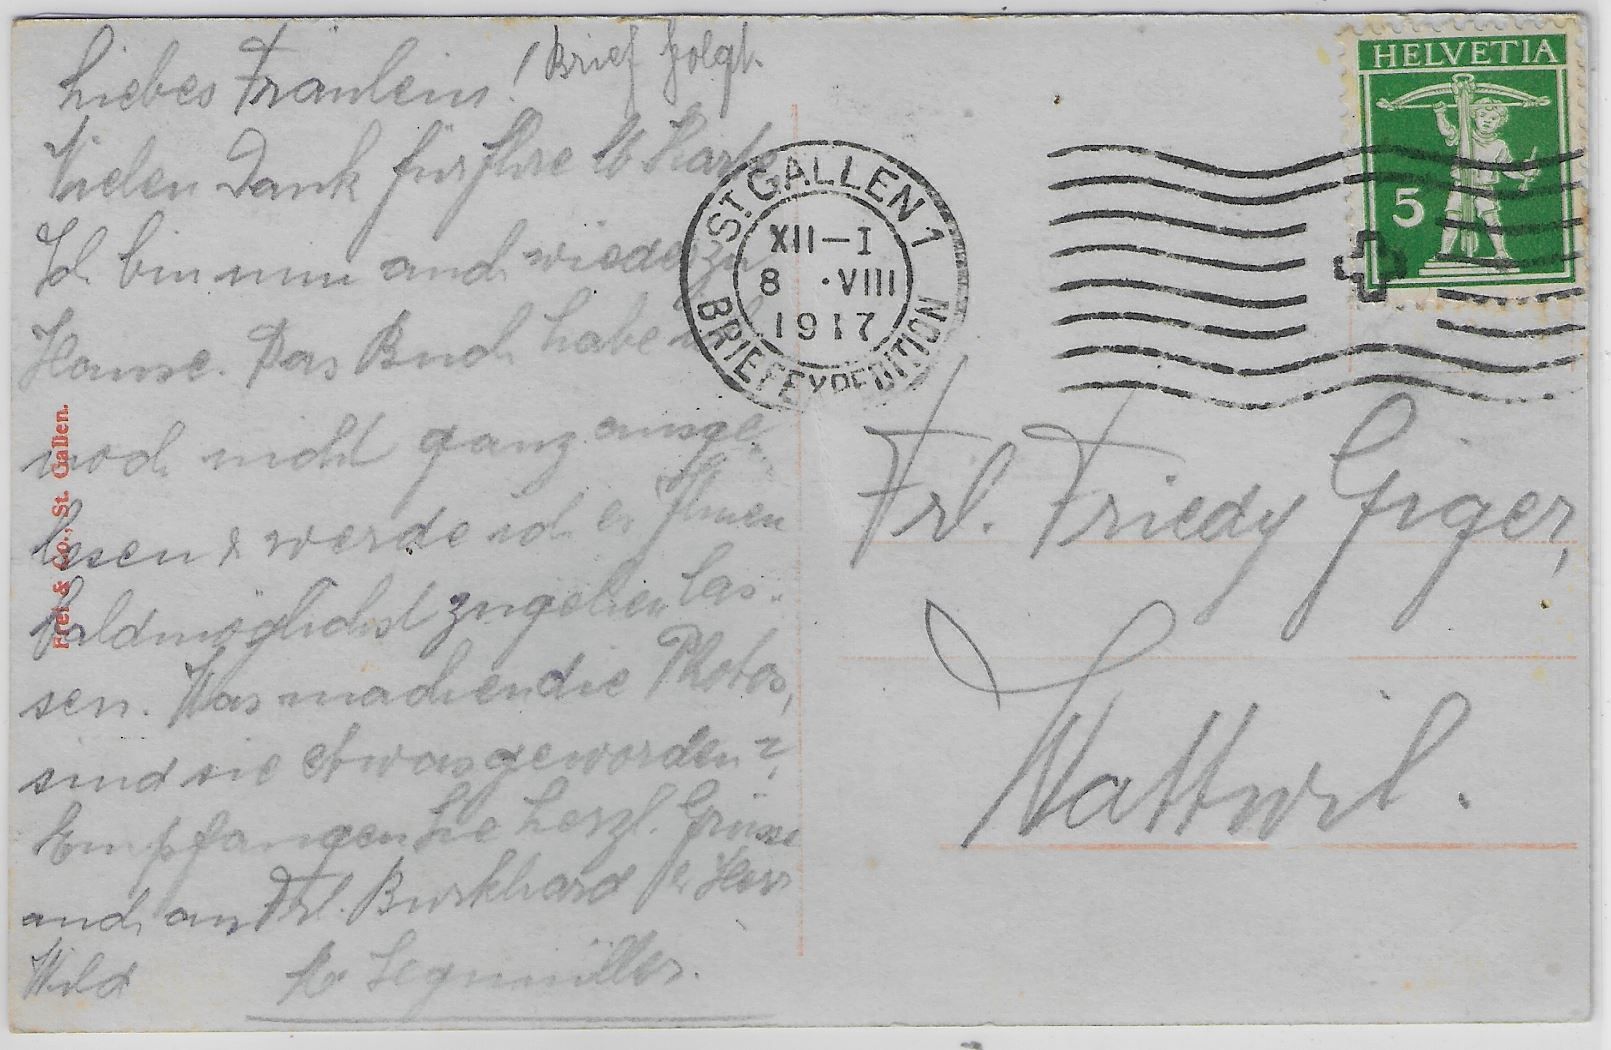 Liebes Fräulein! Brief folgt.
Vielen Dank für Ihre lb Karte
Ich bin nun auch wieder zu
Hause. Das Buch habe ich
noch nicht ganz ausge-
lesen & werde ich es Ihnen
baldmöglichst zugehen las-
sen. Was machen die Photos,
sind sie etwas geworden?
Empfangen Sie herzl. Grüsse
auch an Frl. Burkhard & Herr
Wild
Frei & Co., St. Gallen.
HELVETIA
5
ST GALLEN 1
XII-I
8 ·VIII
1917
BRIEFEXPEDITION
Frl. Friedy Giger,
Wattwil.